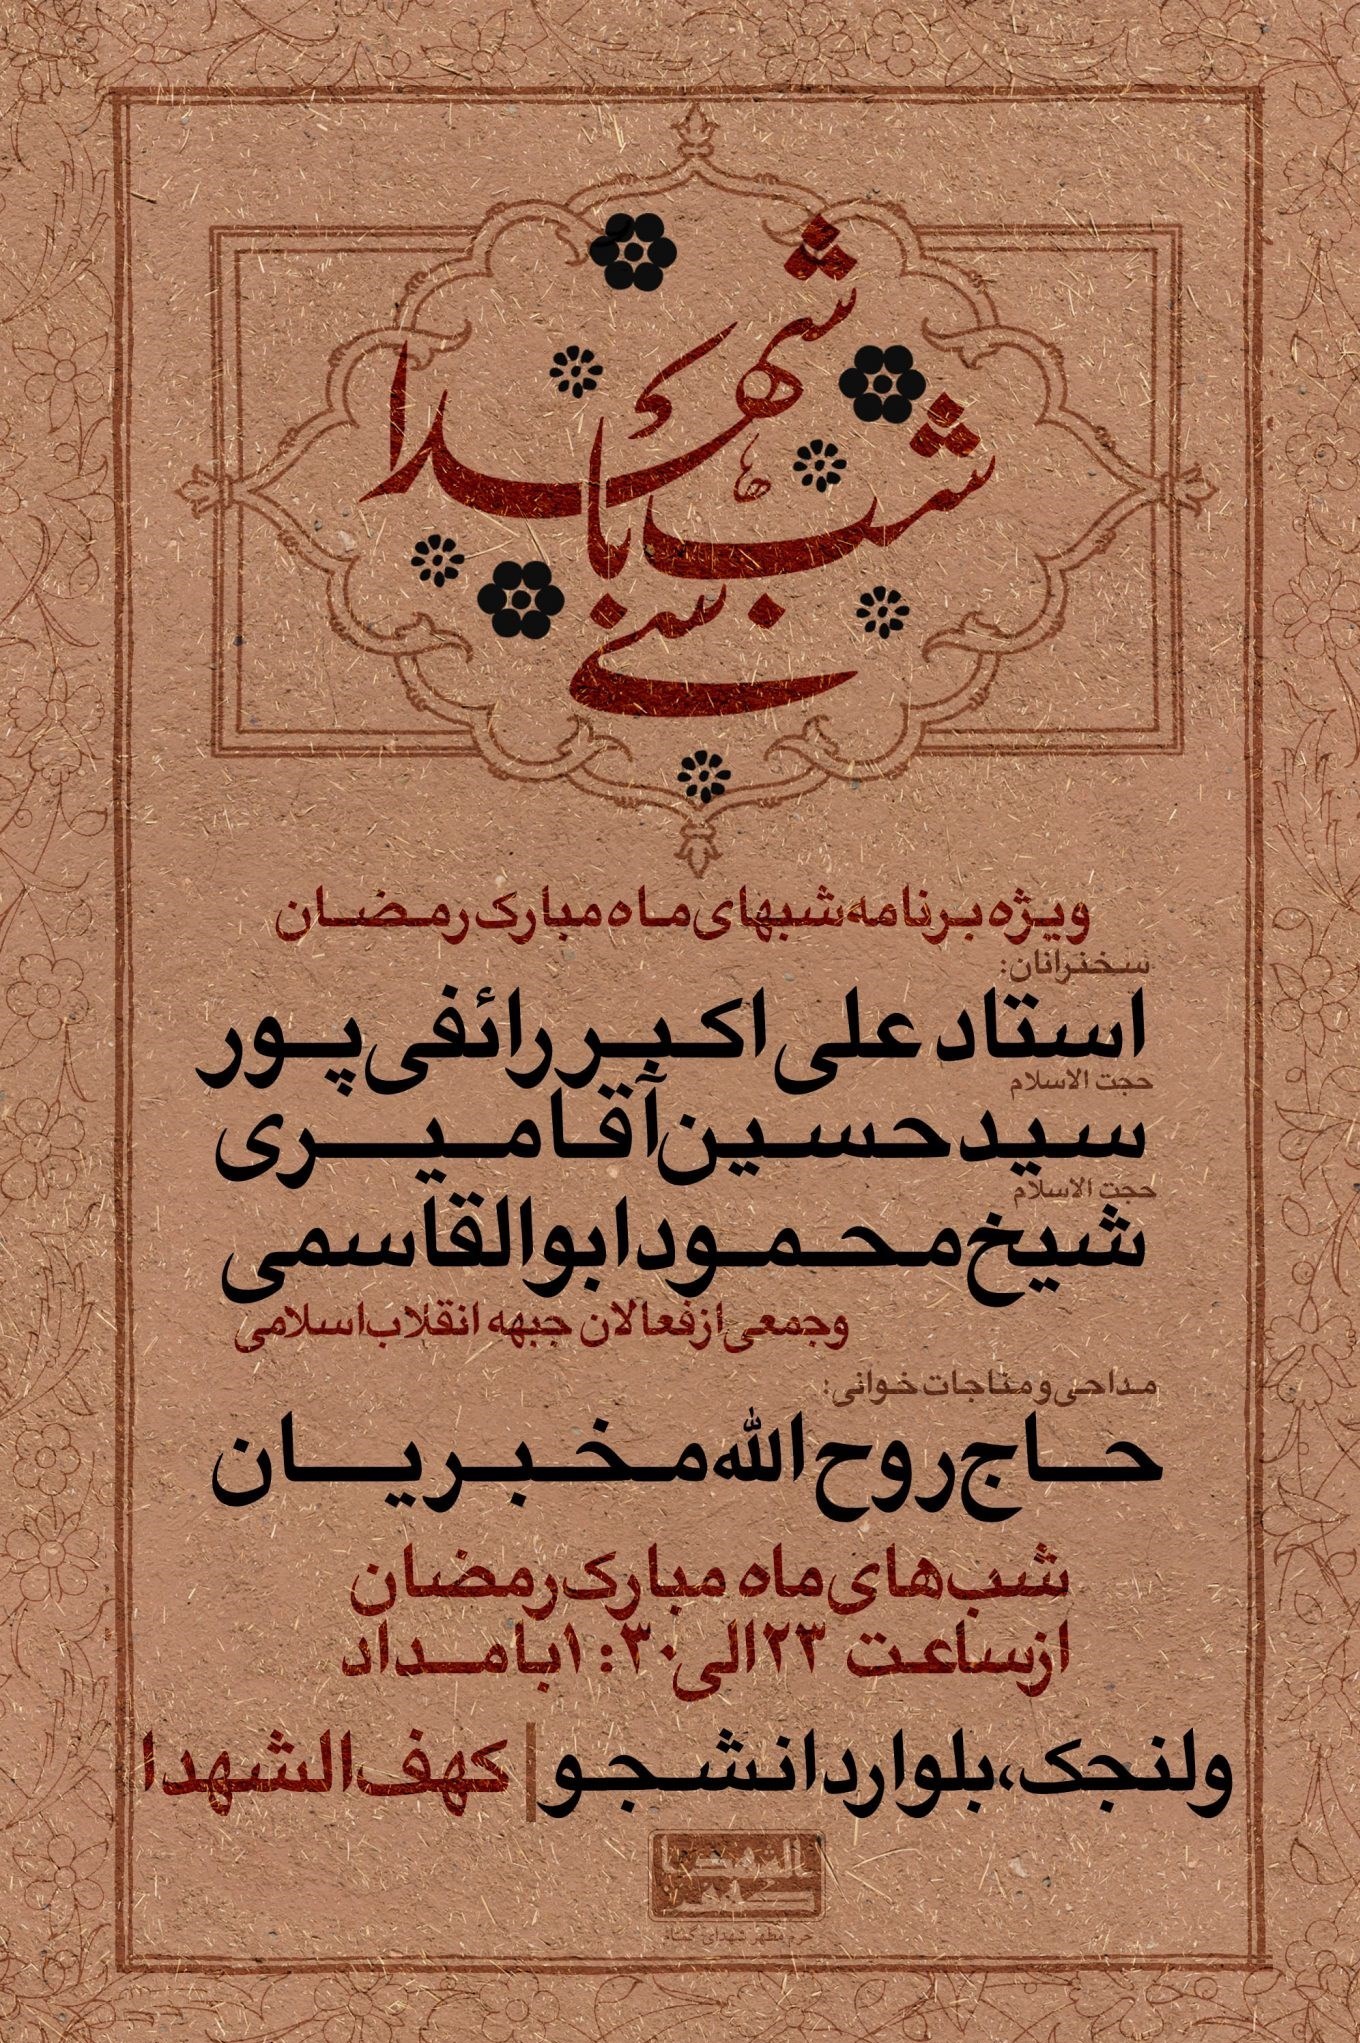 شبی با شهدا
ویژه برنامه شبهای ماه مبارک رمضان
سخنرانان:
استاد علی اکبر رائفی پور
حجت الاسلام
سید حسین آقامیری
حجت الاسلام
شیخ محمود ابوالقاسمی
و جمعی از فعالان جبهه انقلاب اسلامی
مداحی و مناجات خوانی:
حاج روح الله مخبریان
شب‌های ماه مبارک رمضان
از ساعت ۲۳ الی ۱:۳۰ بامداد
ولنجک، بلوار دانشجو | کهف الشهدا
کهف الشهدا
حرم مطهر شهدای گمنام